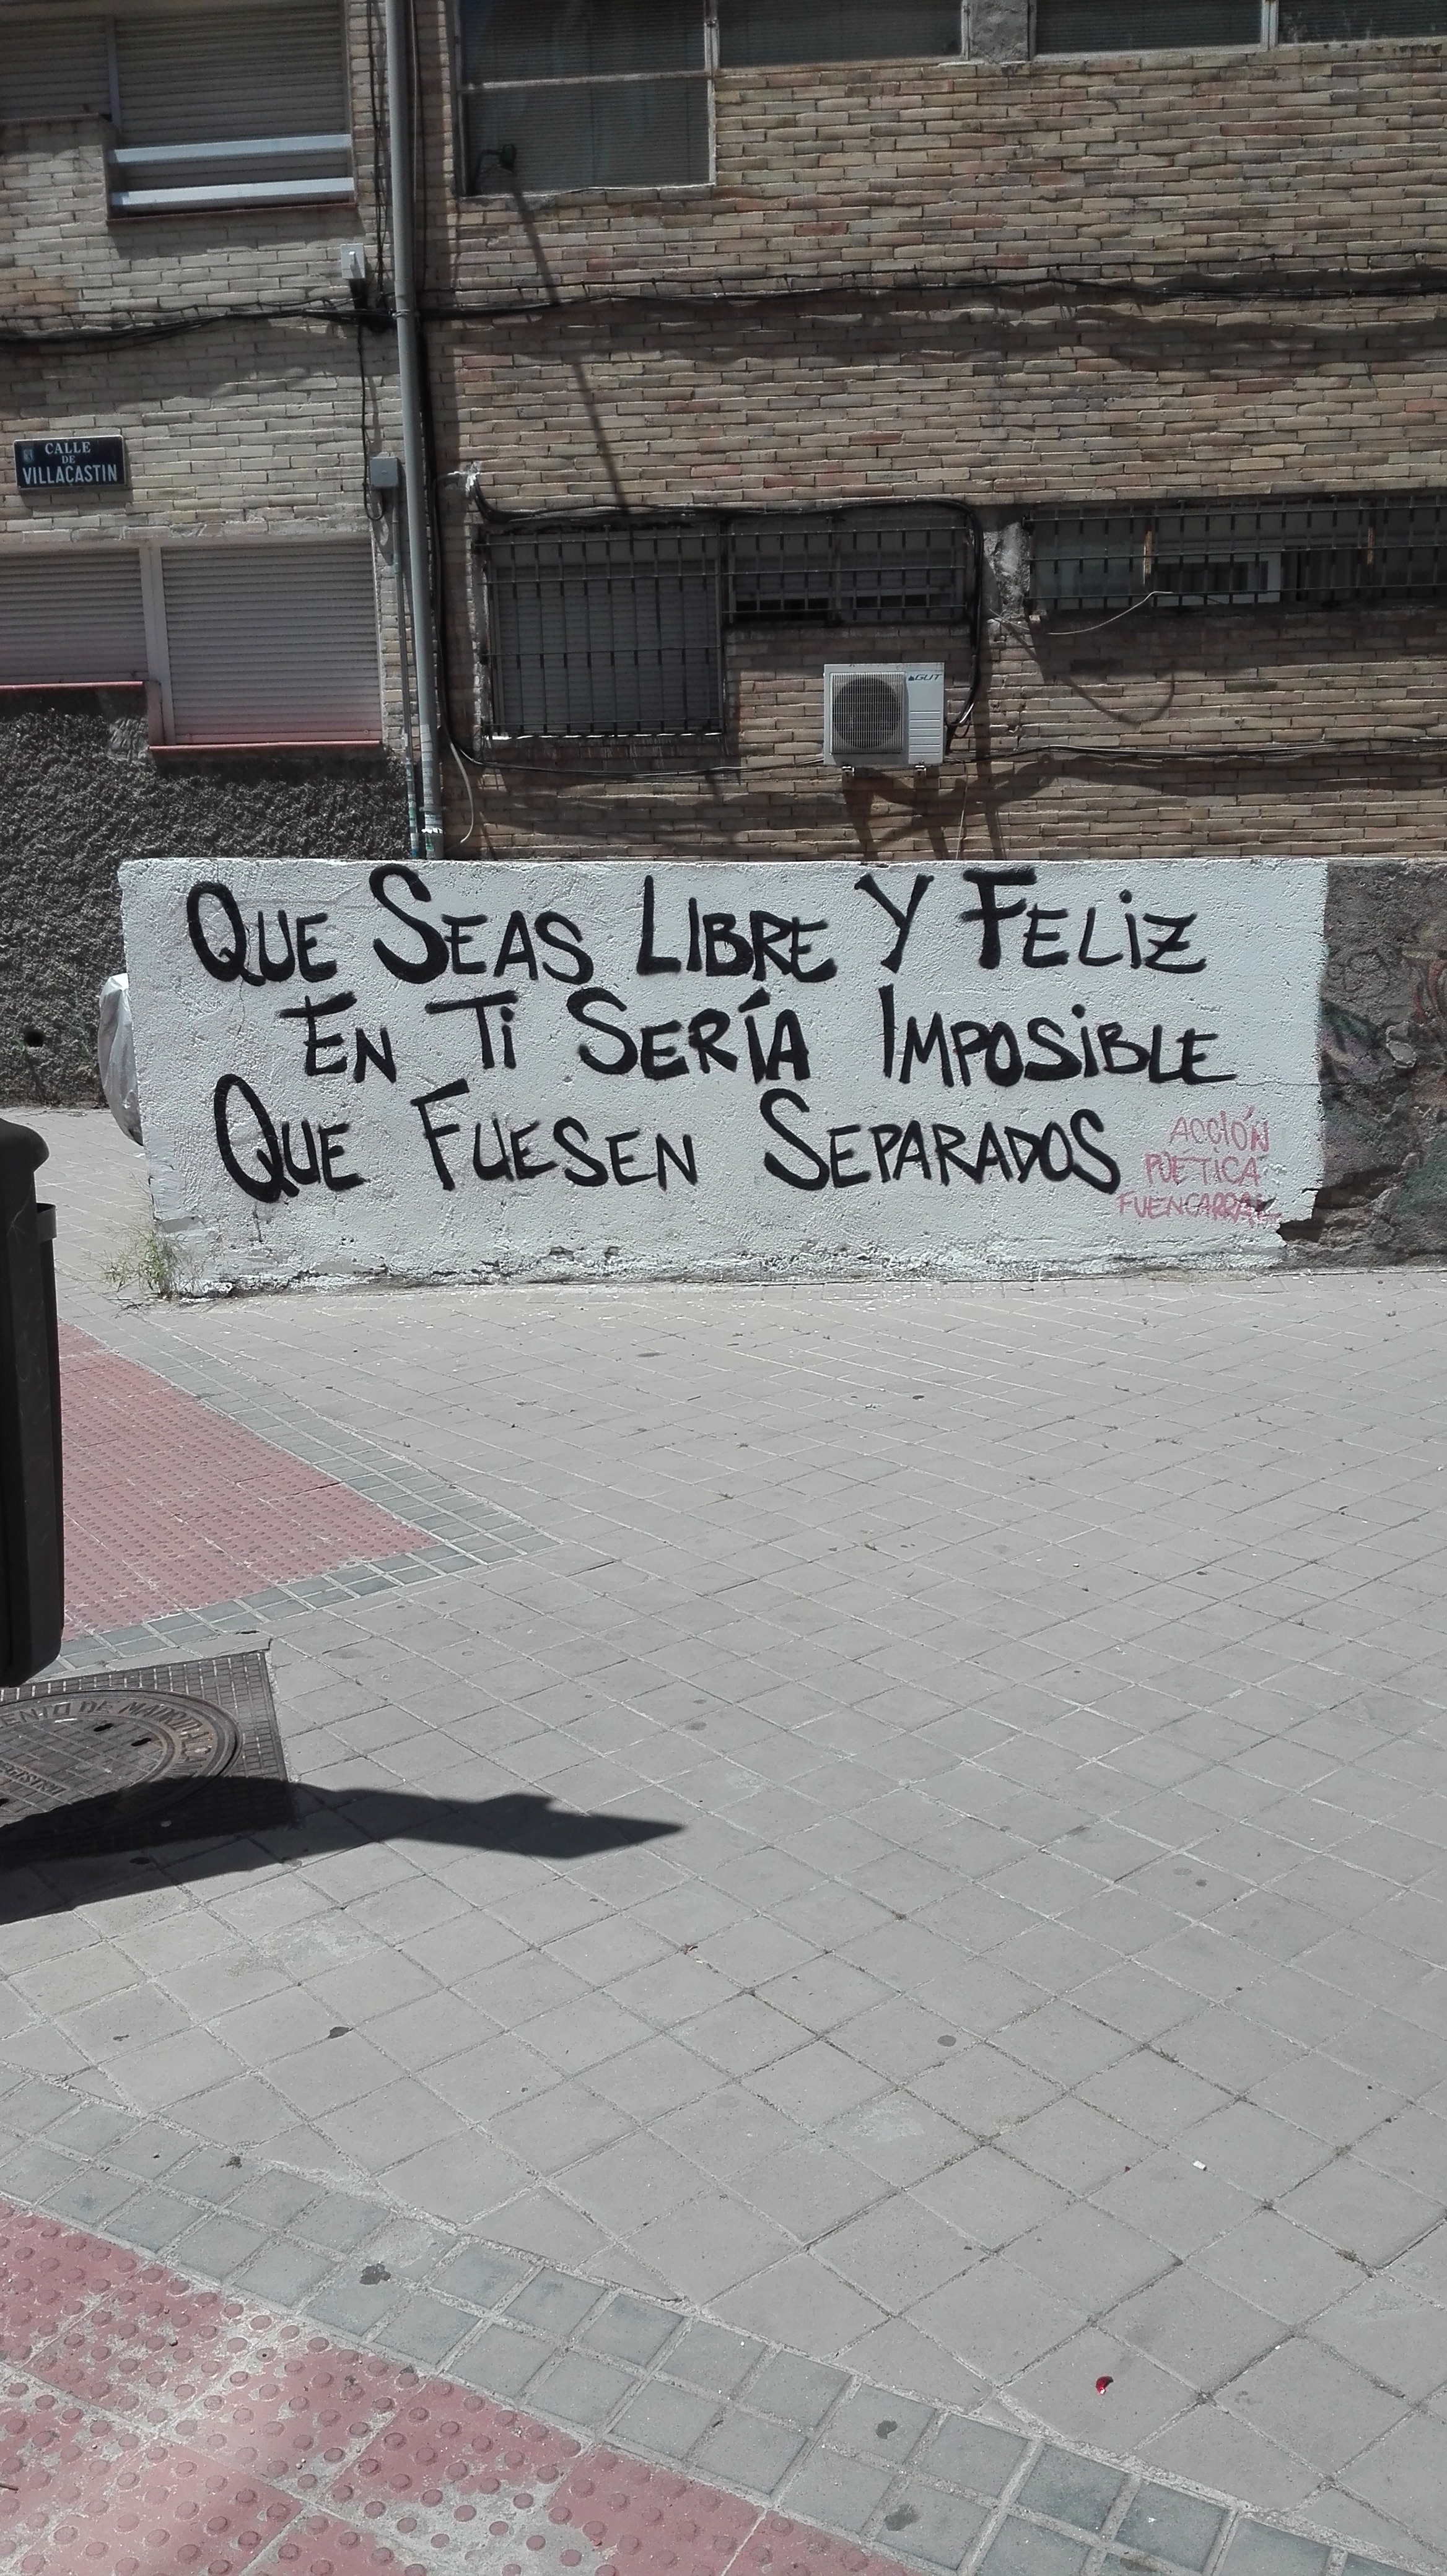 CALLE
DE
VILLACASTIN
GUT
QUE SEAS LIBRE Y FELIZ
EN TI SERÍA IMPOSIBLE
QUE FUESEN SEPARADOS
ACCIÓN
POETICA
FUENCARRAL
DE MADRID
REGISTRO